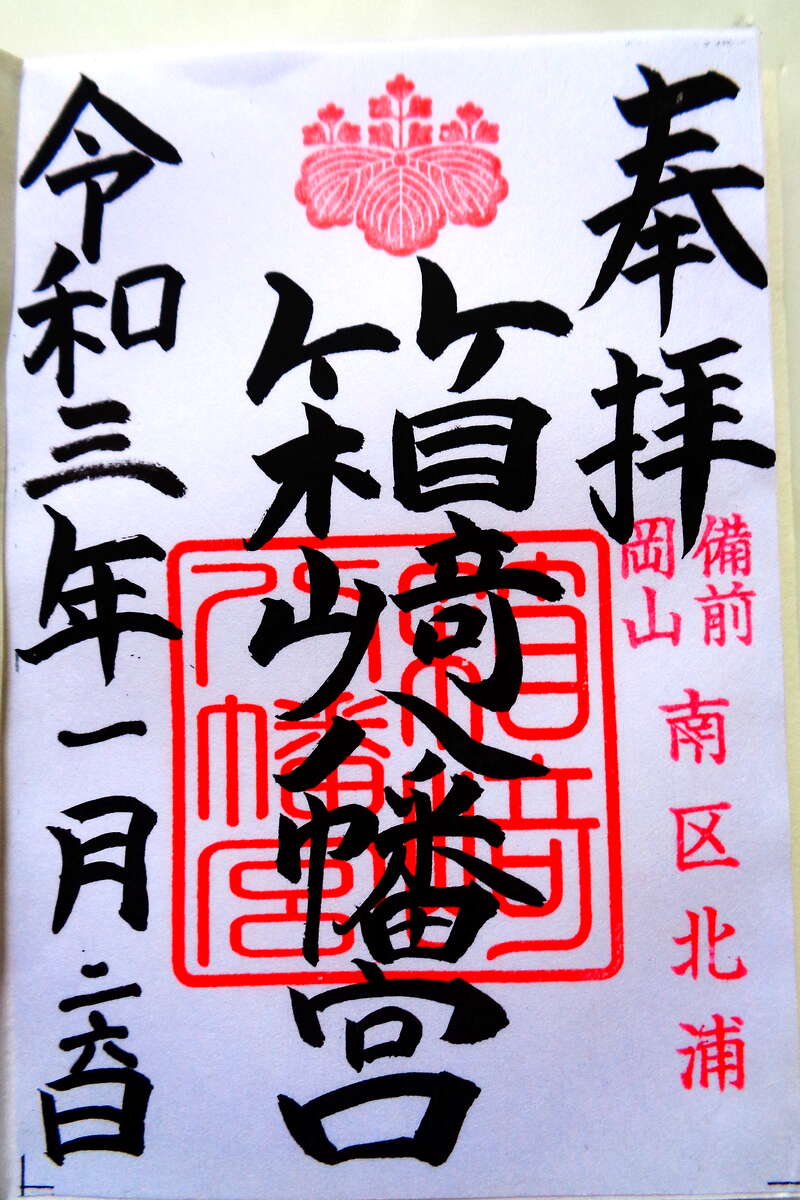 奉拝
備前
岡山
南区北浦
箱﨑八幡宮
箱崎八幡宮
令和三年一月二六日